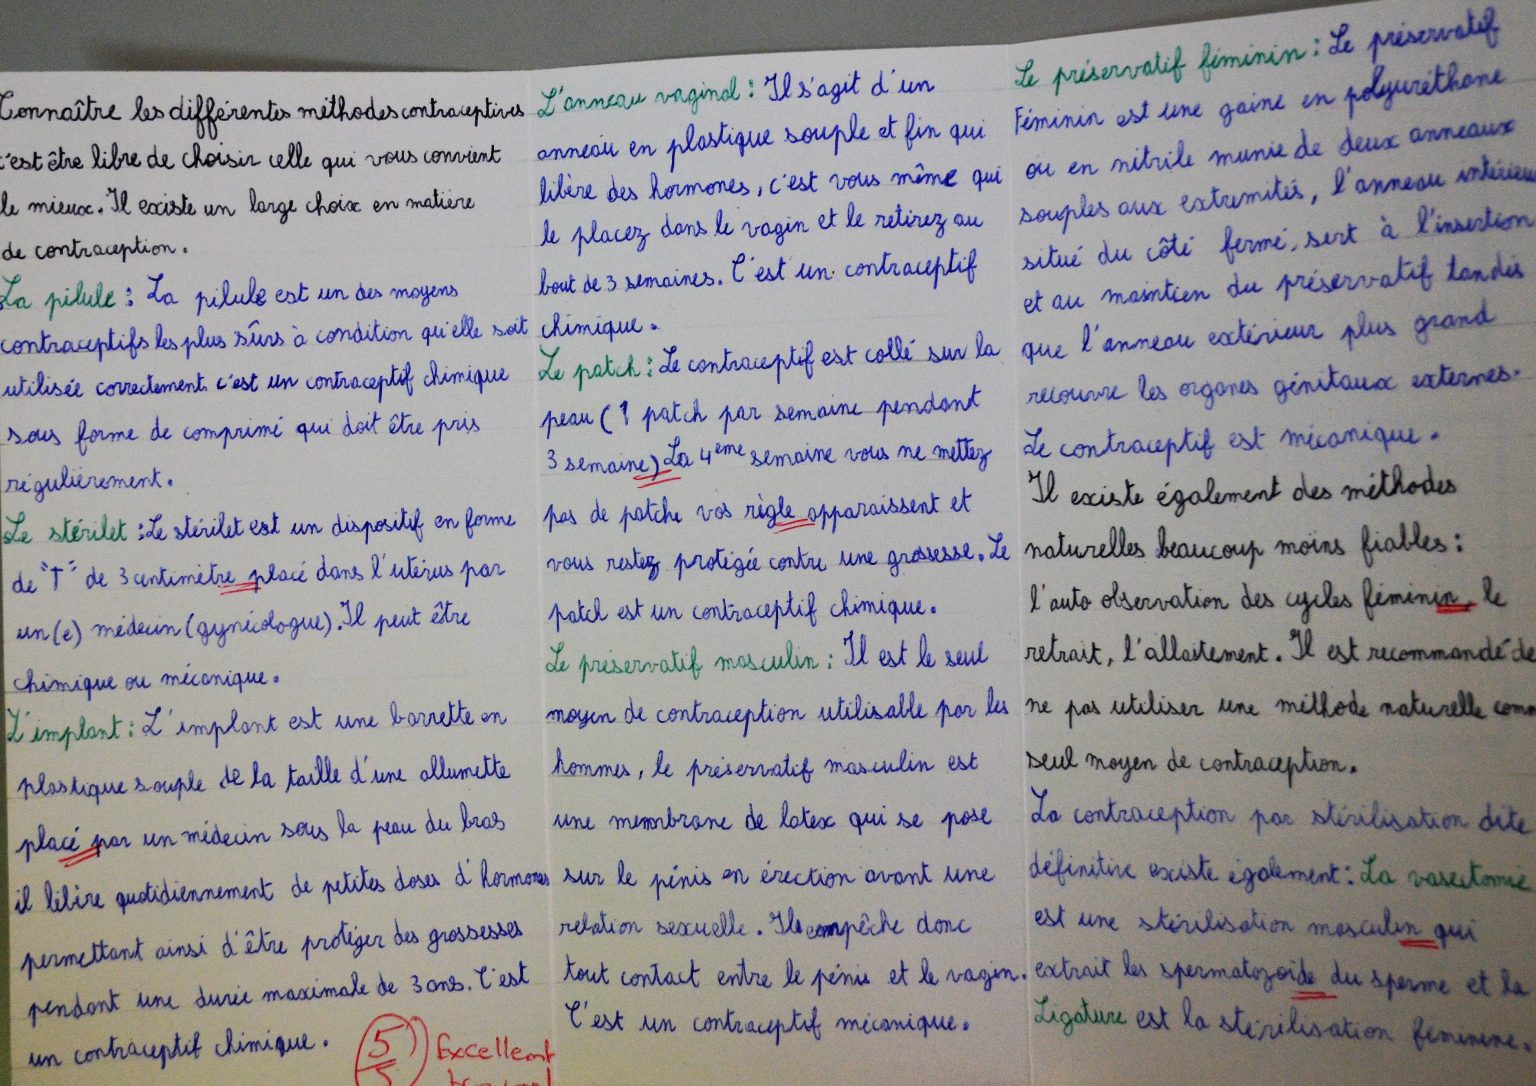 Connaître les différentes méthodes contraceptives
c'est être libre de choisir celle qui vous convient
le mieux. Il existe un large choix en matière
de contraception.
La pilule : La pilule est un des moyens
contraceptifs les plus sûrs à condition qu'elle soit
utilisée correctement. c'est un contraceptif chimique
sous forme de comprimé qui doit être pris
régulièrement.
Le stérilet : Le stérilet est un dispositif en forme
de "T" de 3 centimètre placé dans l'utérus par
un(e) médecin (gynécologue). Il peut être
chimique ou mécanique.
L'implant : L'implant est une barrette en
plastique souple de la taille d'une allumette
placé par un médecin sous la peau du bras
il libère quotidiennement de petites doses d'hormones
permettant ainsi d'être protéger des grossesses
pendant une durée maximale de 3 ans. C'est
un contraceptif chimique.
5/5 Excellent
L'anneau vaginal : Il s'agit d'un
anneau en plastique souple et fin qui
libère des hormones, c'est vous même qui
le placez dans le vagin et le retirez au
bout de 3 semaines. C'est un contraceptif
chimique.
Le patch : Le contraceptif est collé sur la
peau (1 patch par semaine pendant
3 semaine) La 4eme semaine vous ne mettez
pas de patche vos règle apparaissent et
vous restez protégée contre une grossesse. Le
patch est un contraceptif chimique.
Le préservatif masculin : Il est le seul
moyen de contraception utilisable par les
hommes, le préservatif masculin est
une membrane de latex qui se pose
sur le pénis en érection avant une
relation sexuelle. Il empêche donc
tout contact entre le pénis et le vagin.
C'est un contraceptif mécanique.
Le préservatif féminin : Le préservatif
Féminin est une gaine en polyuréthane
ou en nitrile munie de deux anneaux
souples aux extremités, l'anneau intérieur
situé du côté fermé, sert à l'insertion
et au maintien du préservatif tandis
que l'anneau extérieur plus grand
recouvre les organes génitaux externes.
Le contraceptif est mécanique.
Il existe également des méthodes
naturelles beaucoup moins fiables :
l'auto observation des cycles féminin, le
retrait, l'allaitement. Il est recommandé de
ne pas utiliser une méthode naturelle comm
seul moyen de contraception.
La contraception par stérilisation dite
définitive existe également : La vasectomie
est une stérilisation masculin qui
extrait les spermatozoïde du sperme et la
Ligature est la stérilisation féminine.